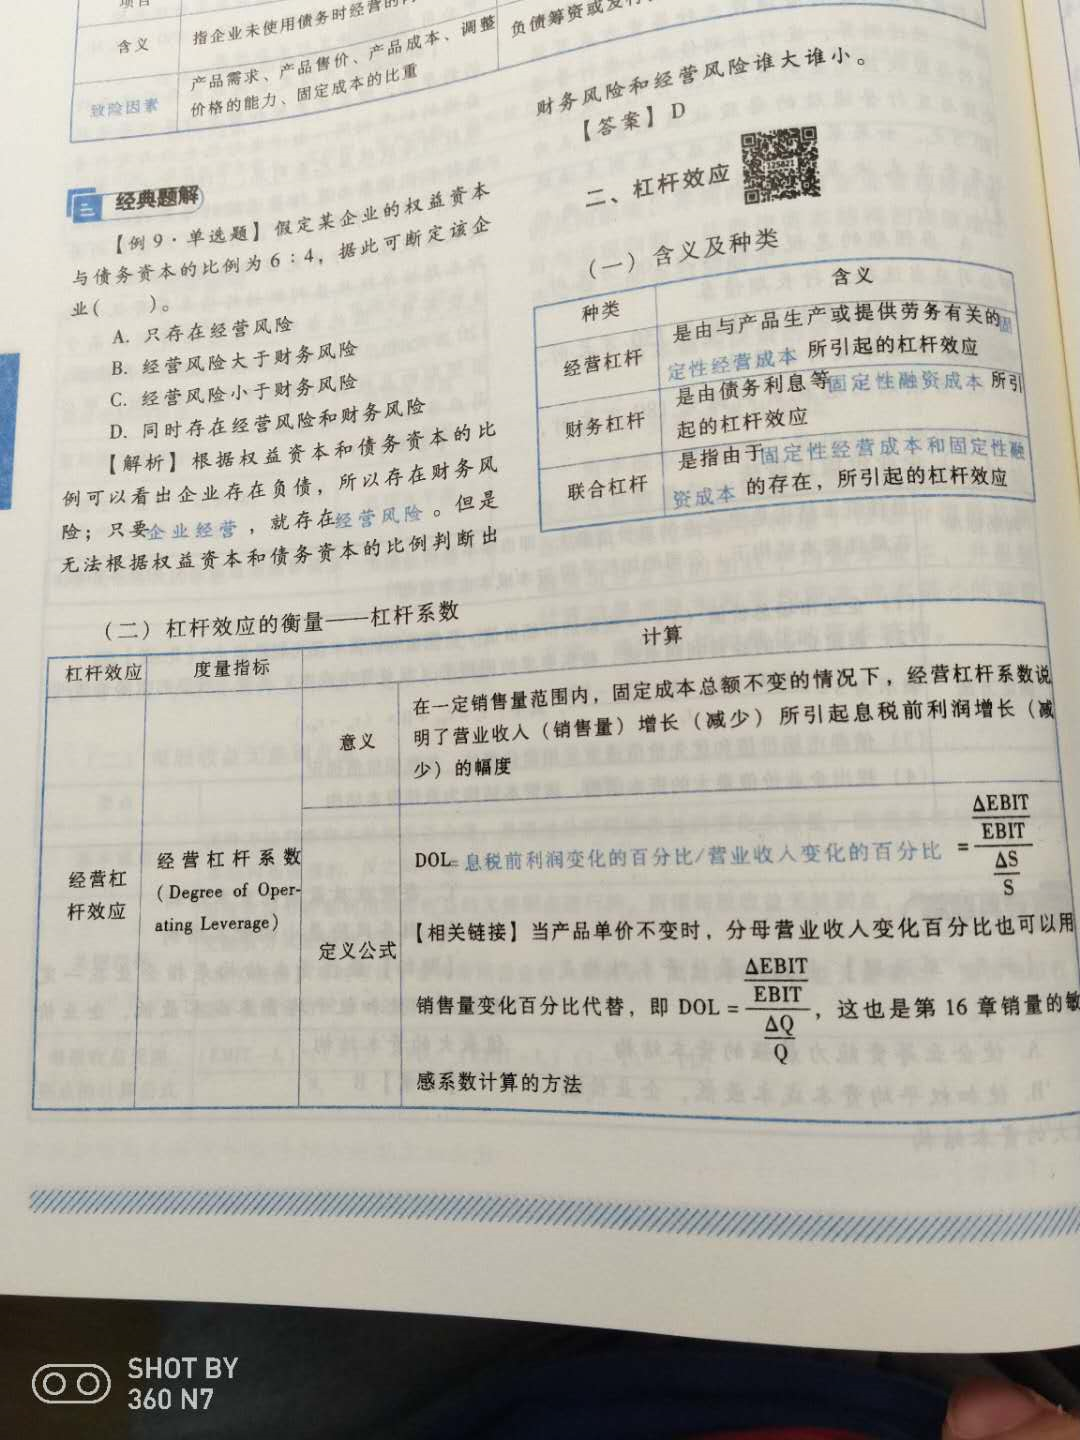 项目
含义
指企业未使用债务时经营的
负债筹资或发行
致险因素
产品需求、产品售价、产品成本、调整
价格的能力、固定成本的比重
经典题解
【例9·单选题】假定某企业的权益资本
与债务资本的比例为6:4，据此可断定该企
业( )。
A. 只存在经营风险
B. 经营风险大于财务风险
C. 经营风险小于财务风险
D. 同时存在经营风险和财务风险
【解析】根据权益资本和债务资本的比
例可以看出企业存在负债，所以存在财务风
险；只要企业经营，就存在经营风险。但是
无法根据权益资本和债务资本的比例判断出
财务风险和经营风险谁大谁小。
【答案】D
二、杠杆效应
125821
（一）含义及种类
种类 含义
经营杠杆
是由与产品生产或提供劳务有关的固
定性经营成本所引起的杠杆效应
财务杠杆
是由债务利息等固定性融资成本所引
起的杠杆效应
联合杠杆
是指由于固定性经营成本和固定性融
资成本的存在，所引起的杠杆效应
（二）杠杆效应的衡量——杠杆系数
杠杆效应 度量指标 计算
经营杠
杆效应
经营杠杆系数
(Degree of Oper-
ating Leverage)
意义
在一定销售量范围内，固定成本总额不变的情况下，经营杠杆系数说
明了营业收入（销售量）增长（减少）所引起息税前利润增长（减
少）的幅度
定义公式
DOL=息税前利润变化的百分比/营业收入变化的百分比 =
ΔEBIT
EBIT
ΔS
S
【相关链接】当产品单价不变时，分母营业收入变化百分比也可以用
销售量变化百分比代替，即 DOL =
ΔEBIT
EBIT
ΔQ
Q
，这也是第16章销量的敏
感系数计算的方法
SHOT BY
360 N7